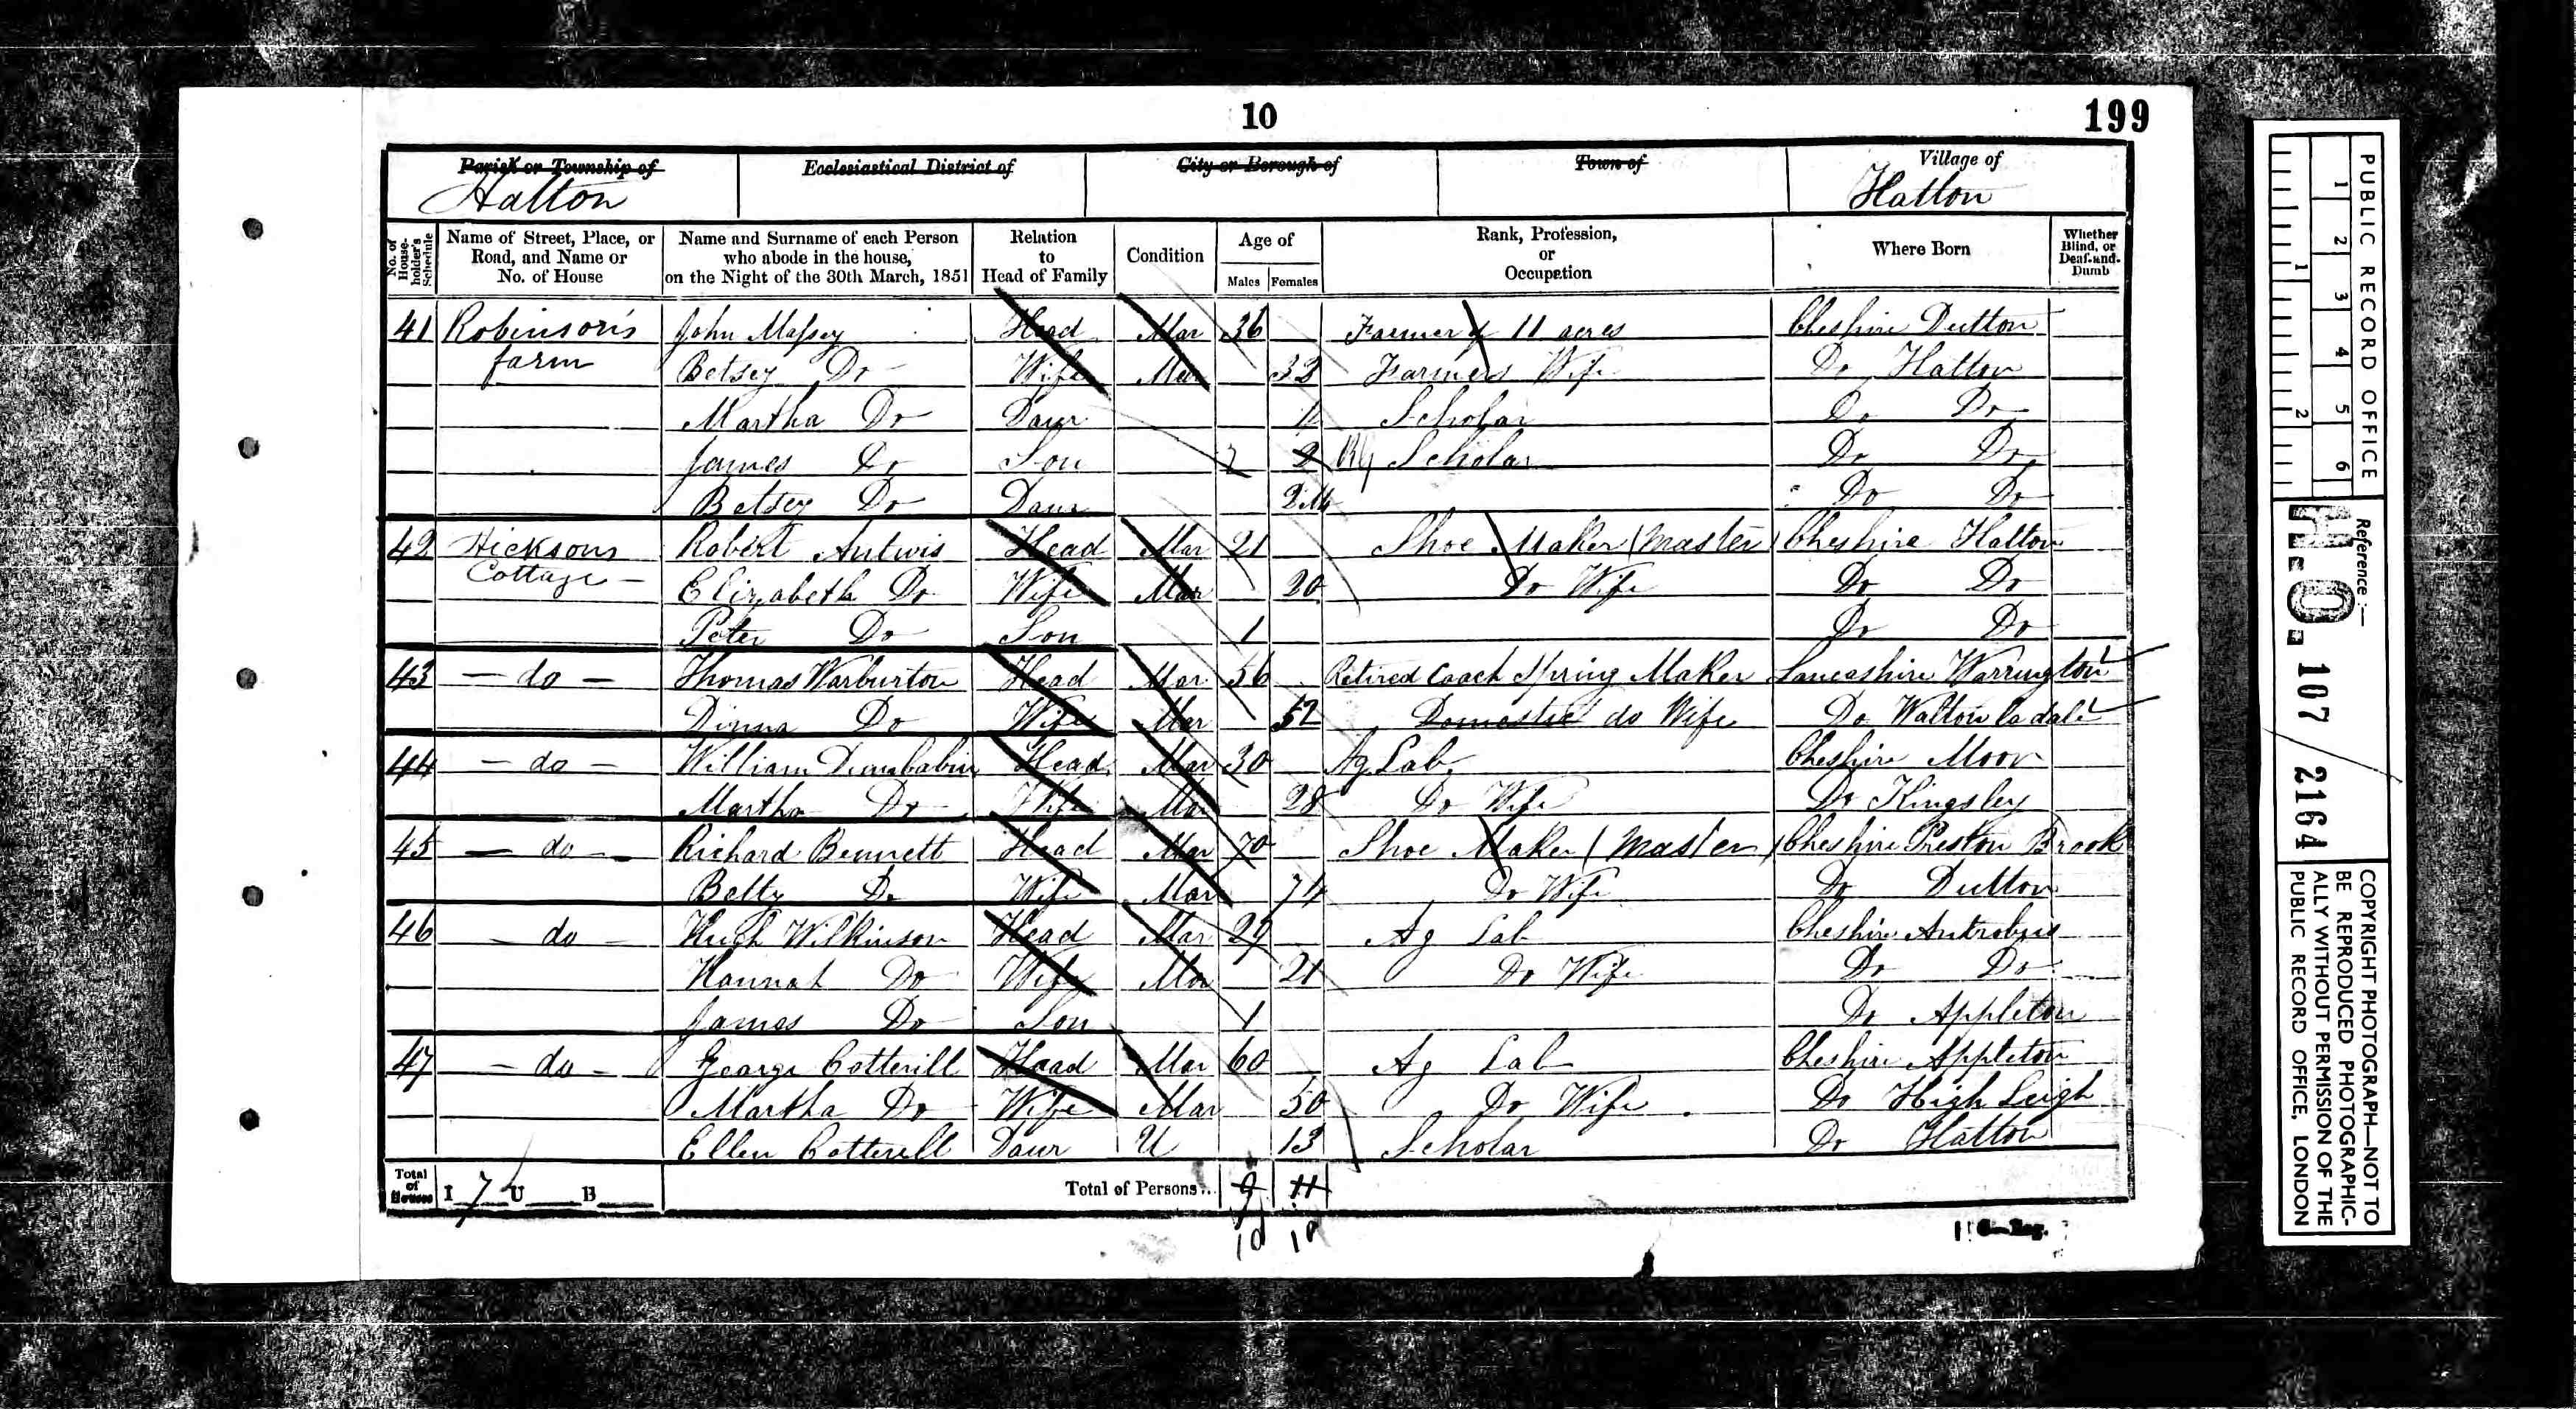 10
199
Parish or Township of
Hatton
Ecclesiastical District of
City or Borough of
Town of
Village of
Hatton
No. of House-holder's Schedule
Name of Street, Place, or Road, and Name or No. of House
Name and Surname of each Person who abode in the house, on the Night of the 30th March, 1851
Relation to Head of Family
Condition
Age of
Males Females
Rank, Profession, or Occupation
Where Born
Whether Blind, or Deaf-and-Dumb
41 Robinson's John Massey Head Mar 36 Farmer of 11 acres Cheshire Dutton
farm Betsey Do Wife Mar 33 Farmers Wife Do Hatton
Martha Do Daur Scholar Do Do
James Do Son 2 2 Scholar Do Do
Betsey Do Daur 2M Do Do
42 Hicksons Robert Antwis Head Mar 21 Shoe Maker (Master) Cheshire Hatton
Cottage Elizabeth Do Wife Mar 20 Do Wife Do Do
Peter Do Son 1 Do Do
43 - do - Thomas Warburton Head Mar 56 Retired Coach Spring Maker Lancashire Warrington
Dinna Do Wife Mar 52 Domestic do Wife Do Walton le dale
44 - do - William Dumbabin Head Mar 30 Ag Lab Cheshire Moor
Martha Do Wife Mar 28 Do Wife Do Kingsley
45 - do - Richard Bennett Head Mar 70 Shoe Maker (Master) Cheshire Preston Brook
Betty Do Wife Mar 74 Do Wife Do Dutton
46 - do - Hugh Wilkinson Head Mar 29 Ag Lab Cheshire Antrobus
Hannah Do Wife Mar 21 Do Wife Do Do
James Do Son 1 Do Appleton
47 - do - George Cotterill Head Mar 60 Ag Lab Cheshire Appleton
Martha Do Wife Mar 50 Do Wife Do High Leigh
Ellen Cotterell Daur U 13 Scholar Do Hatton
Total of Houses I 7 U B Total of Persons.. 9 11
10 10
PUBLIC RECORD OFFICE
1 2 3 4 5 6
1 2
Reference:—
H.O. 107 / 2164
COPYRIGHT PHOTOGRAPH—NOT TO
BE REPRODUCED PHOTOGRAPHIC-
ALLY WITHOUT PERMISSION OF THE
PUBLIC RECORD OFFICE, LONDON